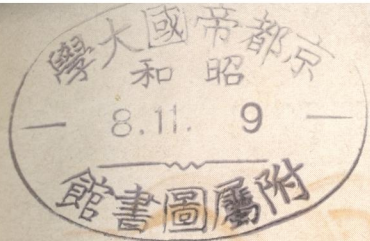 京都帝國大學
昭和
8.11. 9
附屬圖書館